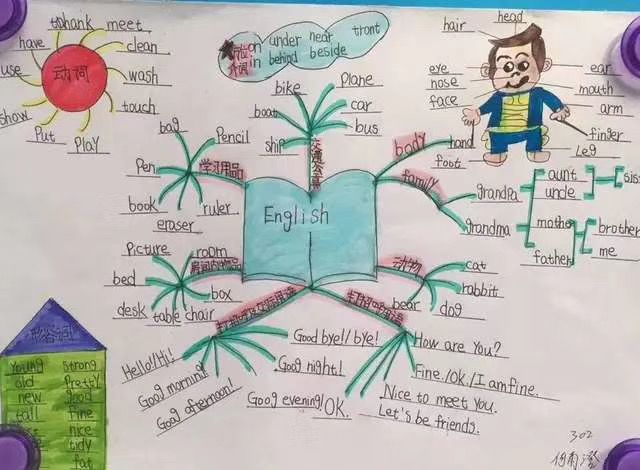 thank meet
have
clean
use
动词
wash
touch
show
Put
Play
on under near front
介词 in behind beside
head
hair
eye
nose
face
ear
mouth
arm
hand
finger
foot
Leg
bike
Plane
boat
car
ship
bus
交通工具
bag
Pencil
Pen
学习用品
book
ruler
eraser
English
body
family
grandpa
aunt
uncle
sis
grandma
mother
father
brother
me
Picture
room
bed
box
desk
table
chair
动物
cat
rabbit
bear
dog
形容词
Young strong
old Pretty
new good
tall fine
nice
tidy
fat
Hello!/Hi!
Goog morning!
Goog afternoon!
Good bye!/bye!
Goog night!
Goog evening!
OK.
How are You?
Fine./Ok./I am fine.
Nice to meet you.
Let's be friends.
302